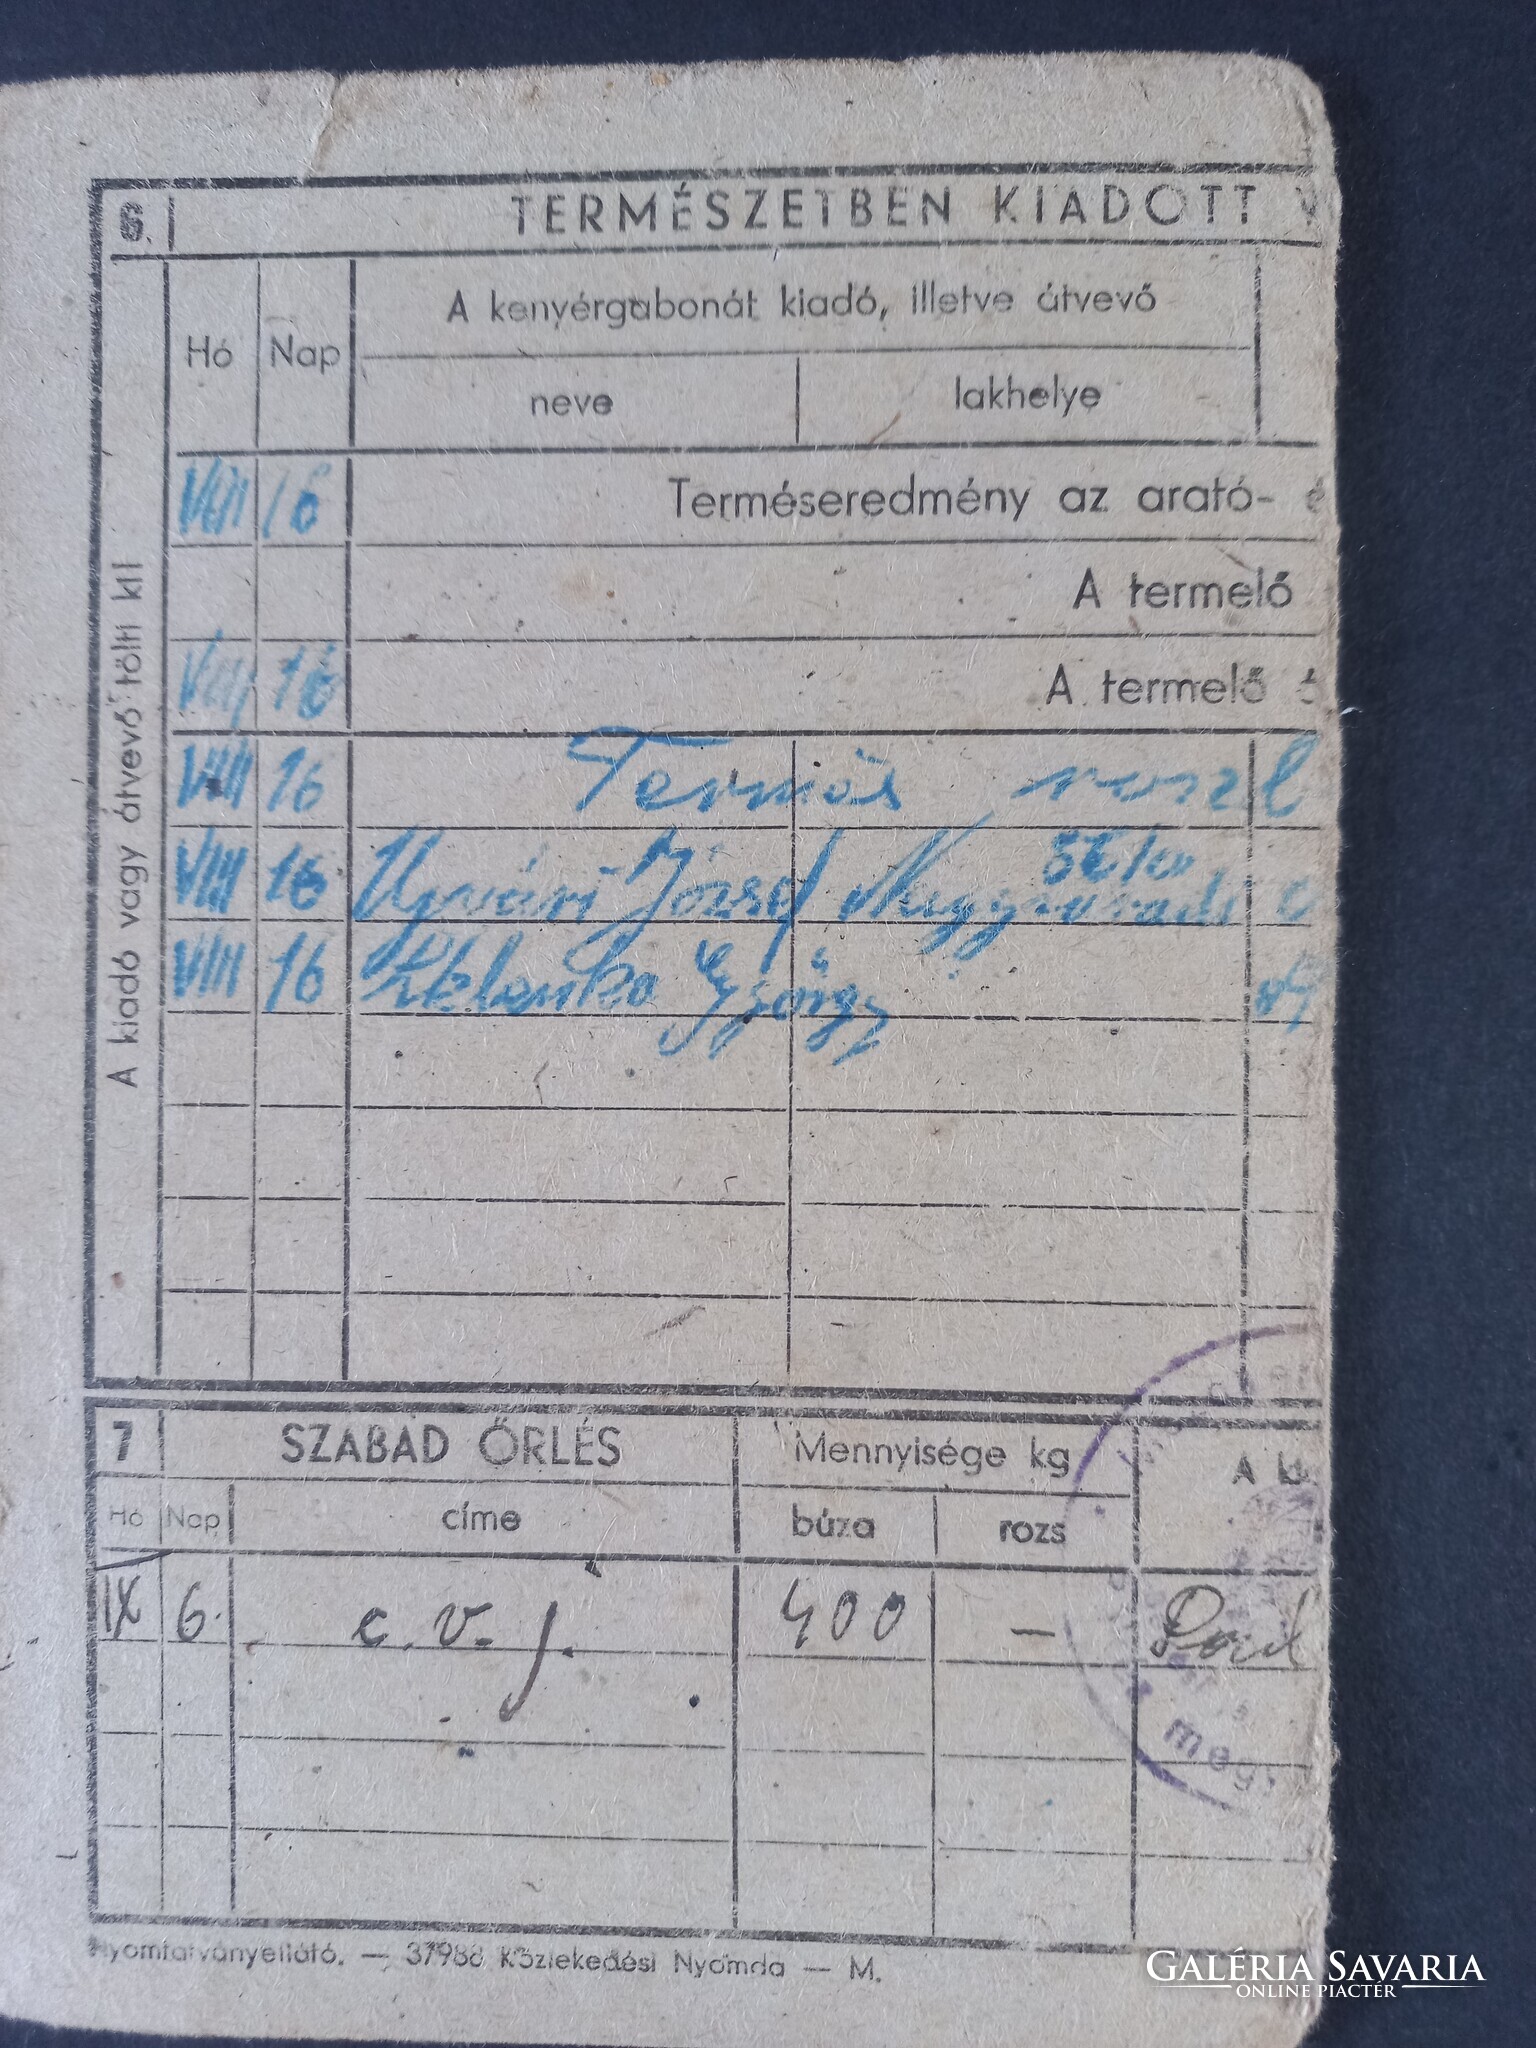 6. TERMÉSZETBEN KIADOTT V
A kenyérgabonát kiadó, illetve átvevő
Hó Nap
neve lakhelye
VIII 16 Terméseredmény az arató- é
A termelő
VIII 16 A termelő
VIII 16 Termés
VIII 16 Ujvári József
VIII 16 György
A kiadó vagy átvevő tölti ki!
7 SZABAD ŐRLÉS Mennyisége kg
A ki
Hó Nap címe búza rozs
IX 6. c. v. j. 400 —
meg
Nyomtatványellátó. — 37988 Közlekedési Nyomda — M.
GALÉRIA SAVARIA
ONLINE PIACTÉR